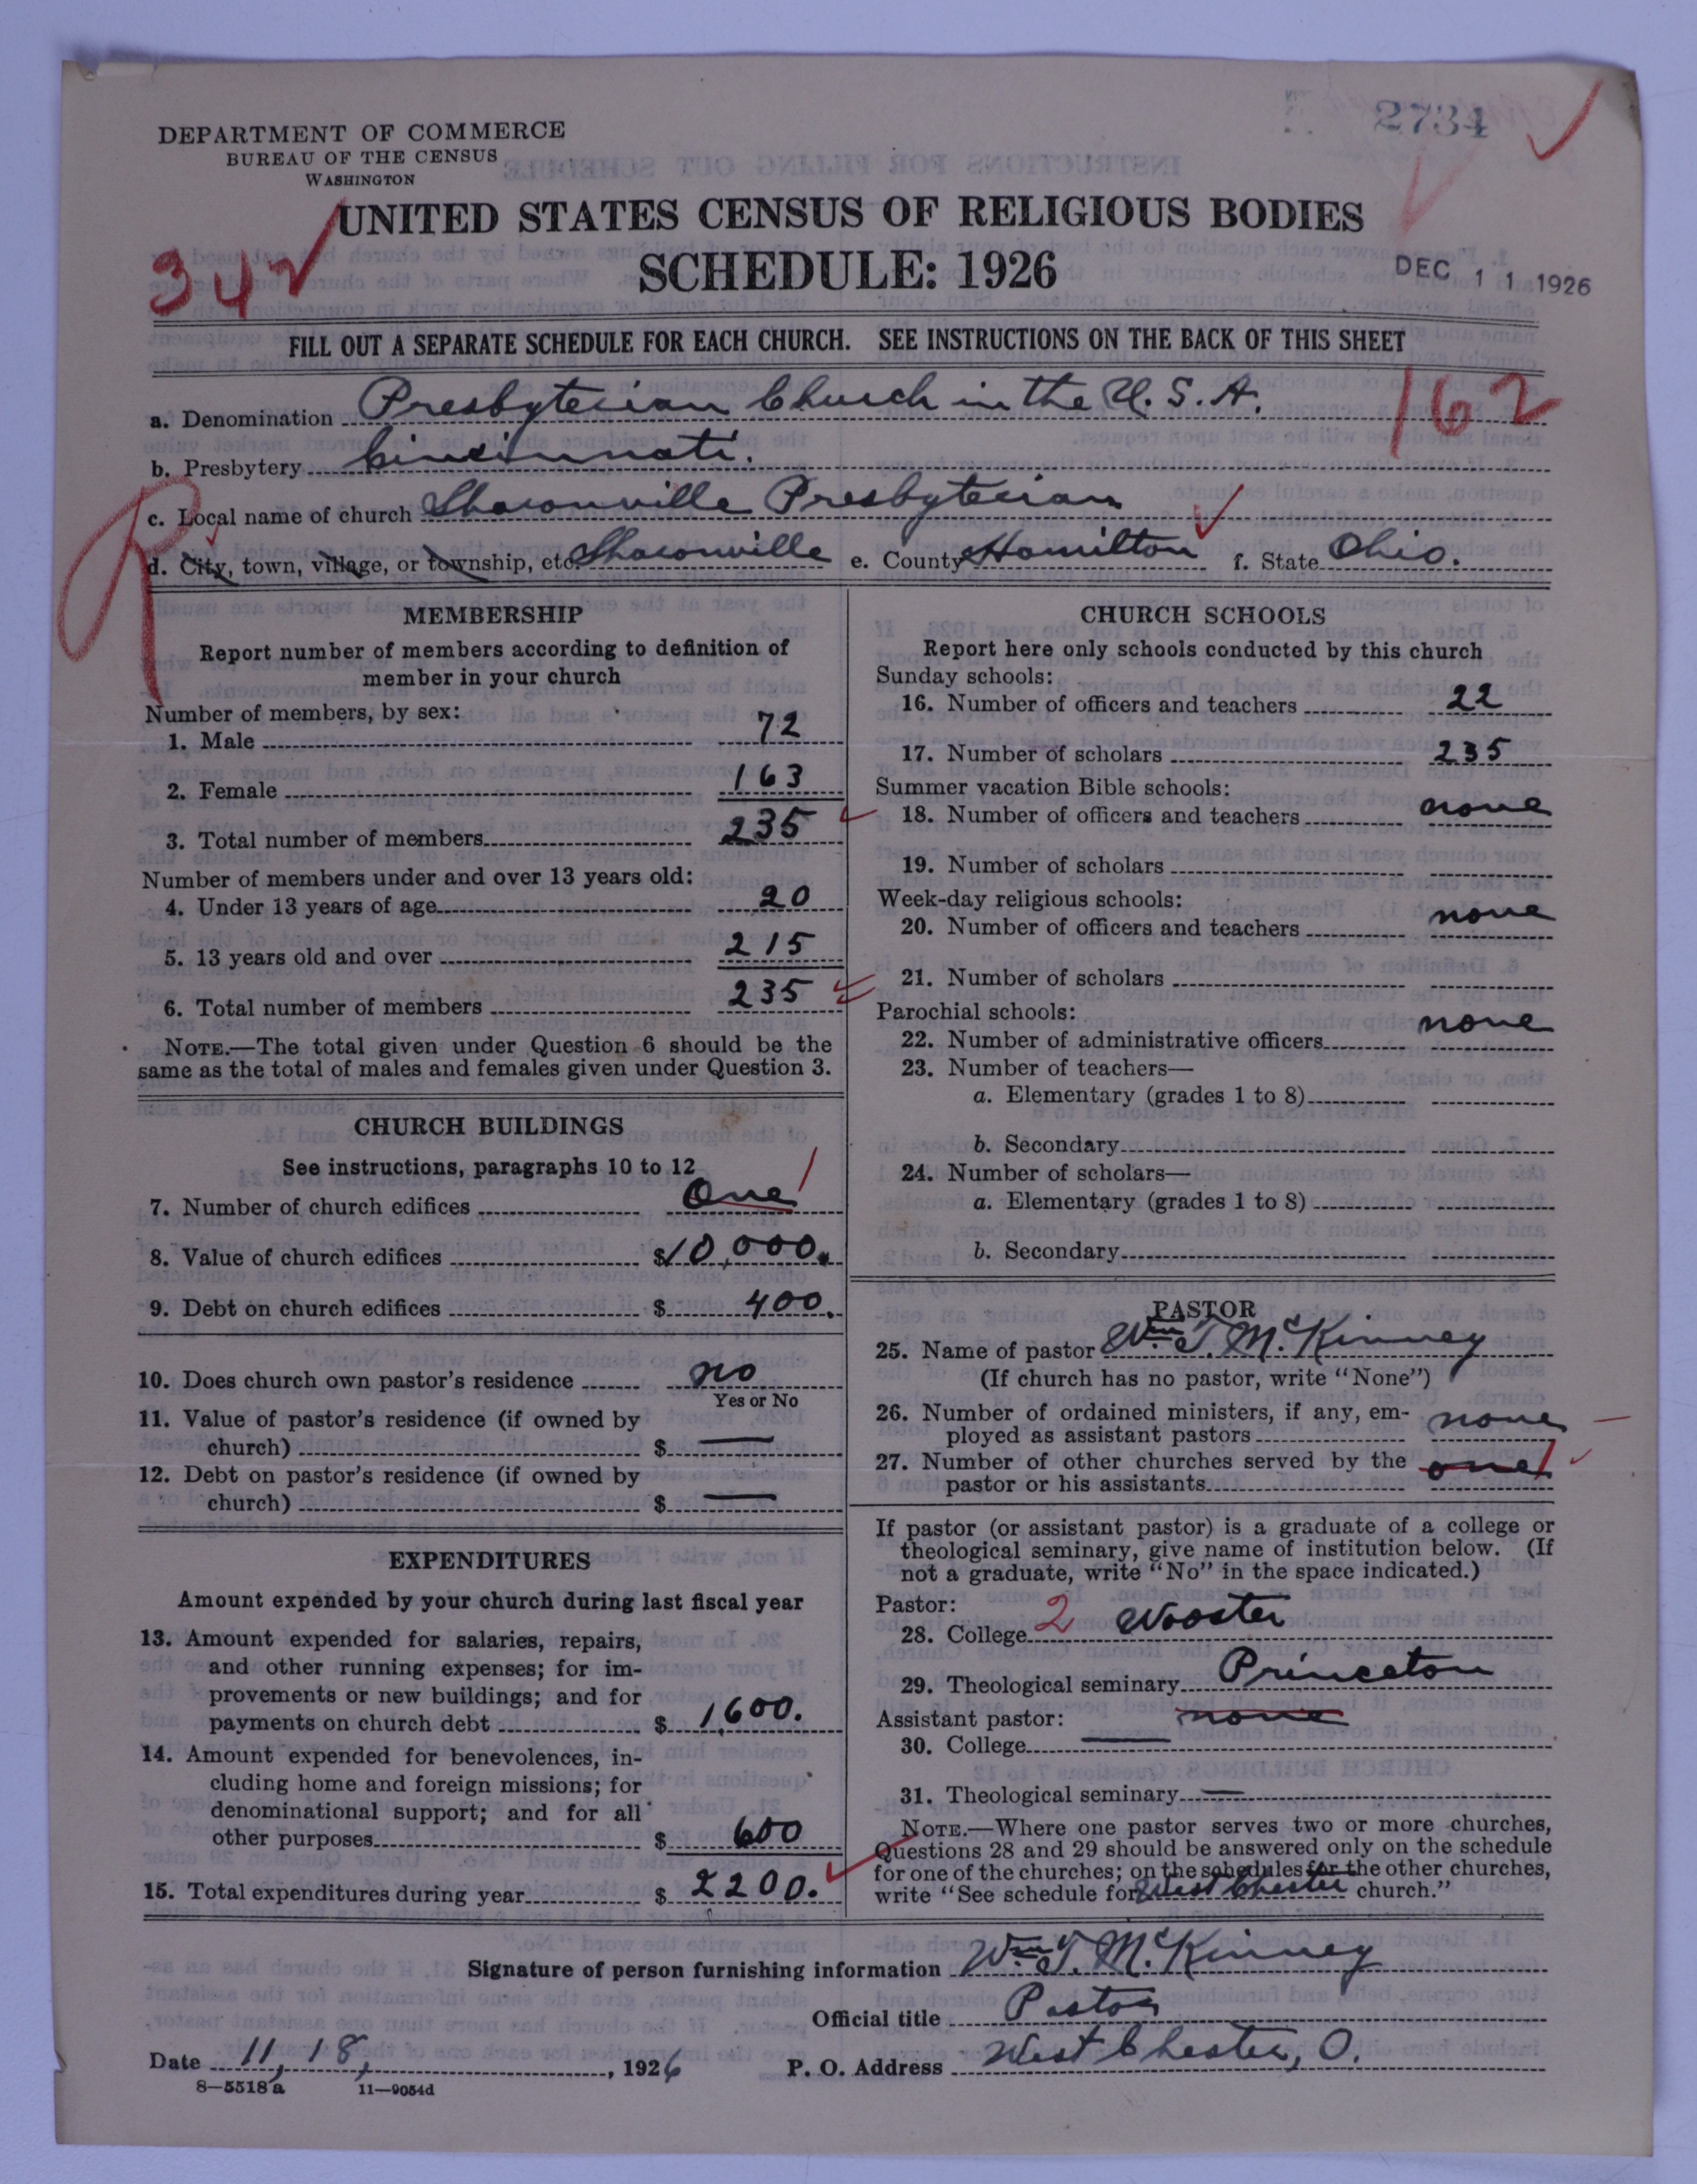 2734
DEPARTMENT OF COMMERCE
BUREAU OF THE CENSUS
WASHINGTON
UNITED STATES CENSUS OF RELIGIOUS BODIES
342
SCHEDULE: 1926
DEC 11 1926
FILL OUT A SEPARATE SCHEDULE FOR EACH CHURCH. SEE INSTRUCTIONS ON THE BACK OF THIS SHEET
a. Denomination Presbyterian Church in the U.S.A.
162
b. Presbytery Cincinnati.
c. Local name of church Sharonville Presbyterian
R
d. City, town, village, or township, etc. Sharonville e. County Hamilton f. State Ohio.
MEMBERSHIP
Report number of members according to definition of
member in your church
Number of members, by sex:
1. Male 72
2. Female 163
3. Total number of members 235
Number of members under and over 13 years old:
4. Under 13 years of age 20
5. 13 years old and over 215
6. Total number of members 235
NOTE.—The total given under Question 6 should be the
same as the total of males and females given under Question 3.
CHURCH BUILDINGS
See instructions, paragraphs 10 to 12
7. Number of church edifices One 1
8. Value of church edifices $10,000.
9. Debt on church edifices $ 400.
10. Does church own pastor's residence no
Yes or No
11. Value of pastor's residence (if owned by
church) $ —
12. Debt on pastor's residence (if owned by
church) $ —
EXPENDITURES
Amount expended by your church during last fiscal year
13. Amount expended for salaries, repairs,
and other running expenses; for im-
provements or new buildings; and for
payments on church debt $ 1,600.
14. Amount expended for benevolences, in-
cluding home and foreign missions; for
denominational support; and for all
other purposes $ 600
15. Total expenditures during year $ 2200.
CHURCH SCHOOLS
Report here only schools conducted by this church
Sunday schools:
16. Number of officers and teachers 22
17. Number of scholars 235
Summer vacation Bible schools:
18. Number of officers and teachers none
19. Number of scholars
Week-day religious schools:
20. Number of officers and teachers none
21. Number of scholars
Parochial schools:
22. Number of administrative officers none
23. Number of teachers—
a. Elementary (grades 1 to 8)
b. Secondary
24. Number of scholars—
a. Elementary (grades 1 to 8)
b. Secondary
PASTOR
25. Name of pastor Wm. T. McKinney
(If church has no pastor, write "None")
26. Number of ordained ministers, if any, em-
ployed as assistant pastors none —
27. Number of other churches served by the
pastor or his assistants one 1
If pastor (or assistant pastor) is a graduate of a college or
theological seminary, give name of institution below. (If
not a graduate, write "No" in the space indicated.)
Pastor:
28. College 2 Wooster
29. Theological seminary Princeton
Assistant pastor: none
30. College —
31. Theological seminary —
NOTE.—Where one pastor serves two or more churches,
Questions 28 and 29 should be answered only on the schedule
for one of the churches; on the schedules for the other churches,
write "See schedule for West Chester church."
Signature of person furnishing information Wm. T. McKinney
Official title Pastor
Date 11, 18, 1926 P. O. Address West Chester, O.
8—5518 a 11—9054d